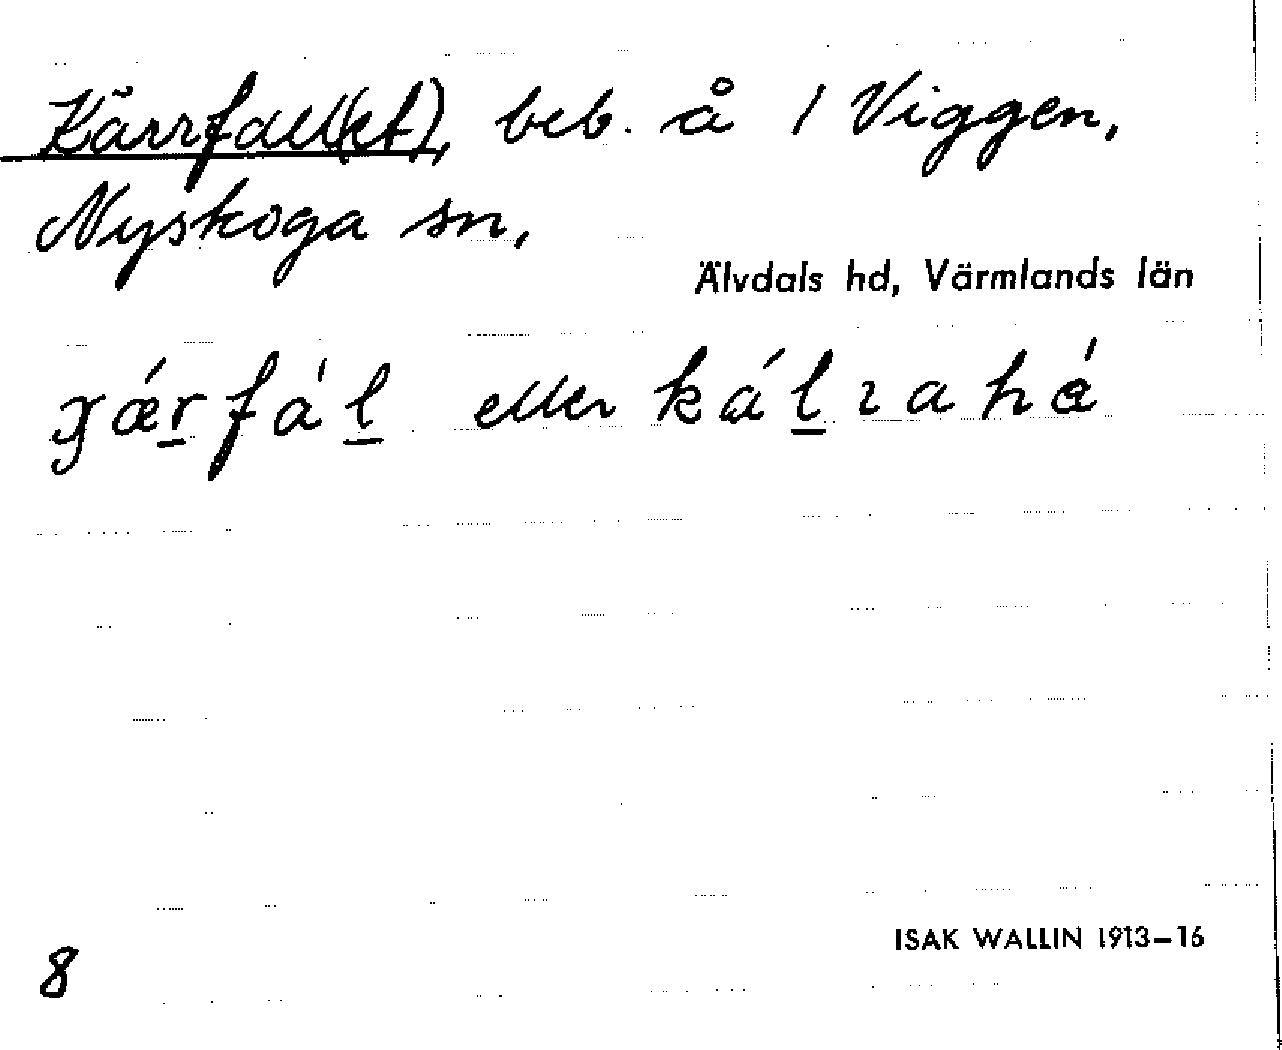 Kärrfall(et), beb. å 1 Viggen,
Nyskoga sn,
Älvdals hd, Värmlands län
eller
8
ISAK WALLIN 1913–16